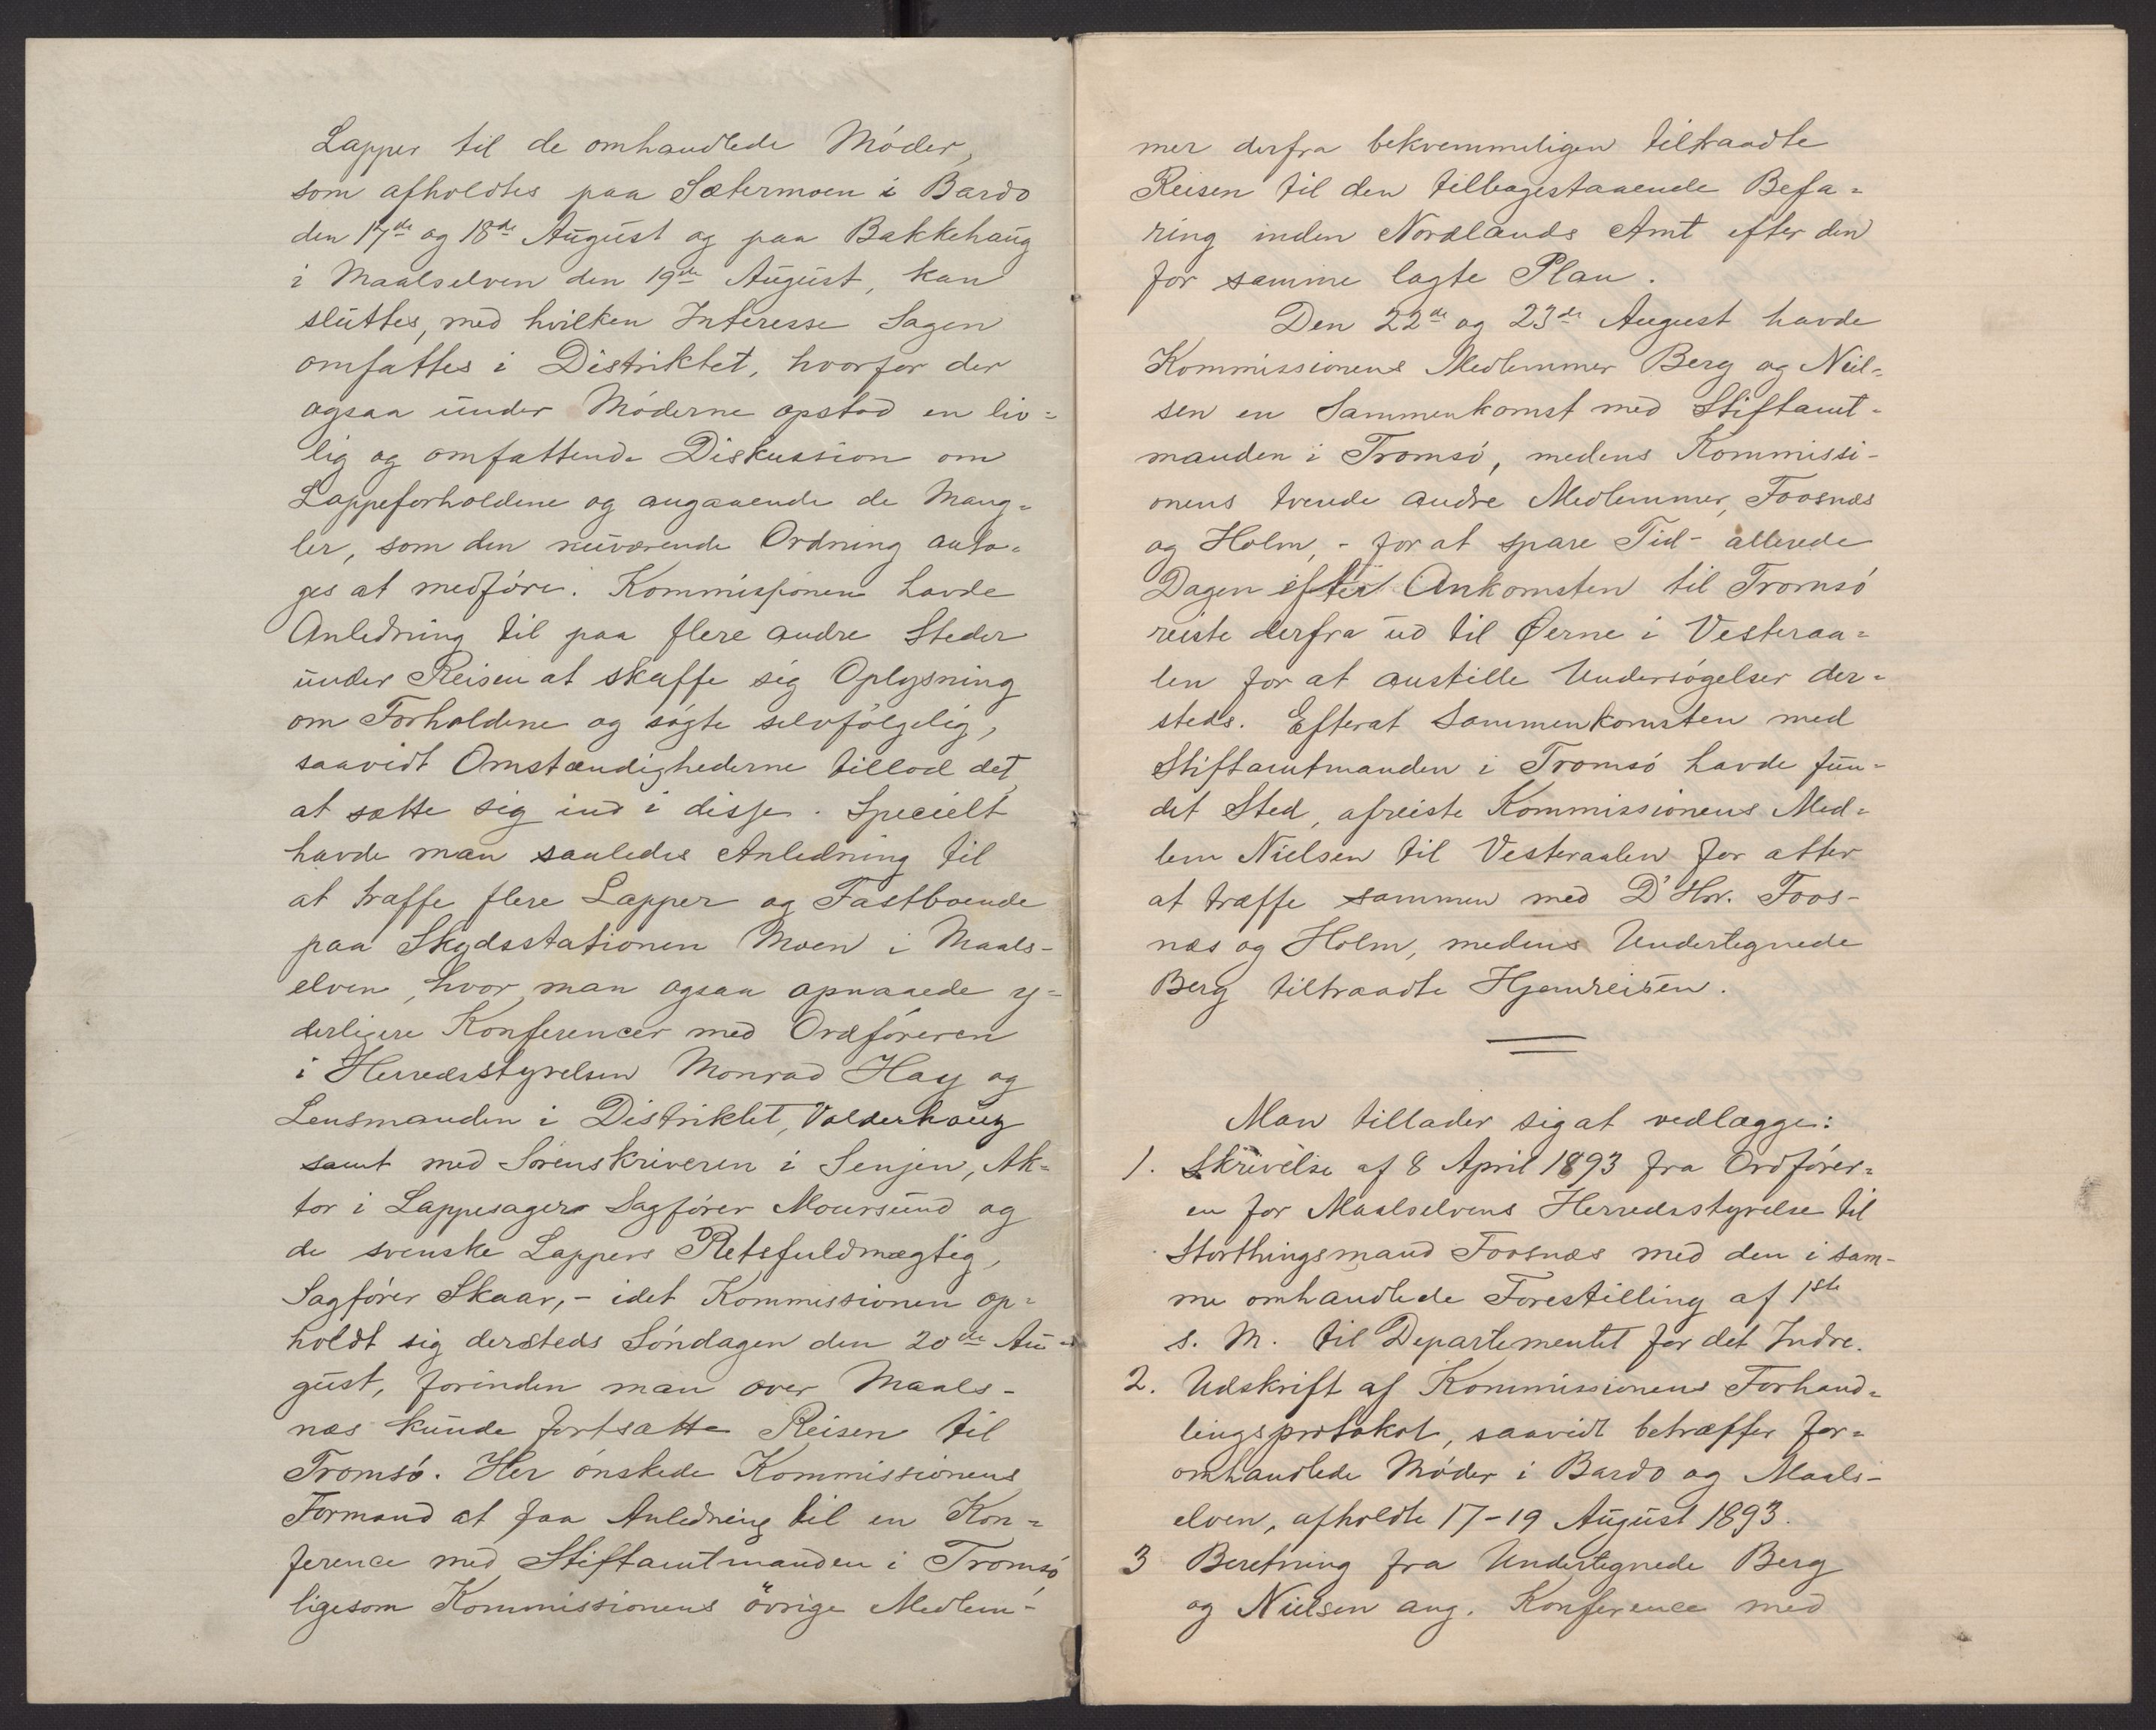 Lapper til de omhandlede Móder,
som afholdtes paa Sætermoen i Bardo
den 17de og 18de August og paa Bakkehaug
i Maalselven den 19de August, kan
sluttes, med hvilken Interesse Sagen
omfattes i Distriktet, hvorfor der
ogsaa under Móderne opstod en liv=
lig og omfattende Diskussion om
Lappeforholdene og angaaende de Mang=
ler, som den nuværende Ordning anta=
ges at medfóre. Kommissionen havde
Anledning til paa flere andre Steder
under Reisen at skaffe sig Oplysning
om Forholdene og sógte selvfólgelig,
saavidt Omstændighederne tillod det,
at sætte sig ind i disse. Specielt
havde man saaledes Anledning til
at træffe flere Lapper og Fastboende
paa Skydsstationen Moen i Maals-
elven, hvor man ogsaa opnaaede y=
derligere Konferencer med Ordfóreren
i Herredsstyrelsen Monrad Hay og
Lensmanden i Distriktet, Valderhaug
samt med Sorenskriveren i Senjen, Ak=
tor i Lappesager Sagfórer Moursund og
de svenske Lappers Retsfuldmægtig,
Sagfórer Skaar, - idet Kommissionen op=
holdt sig dersteds Sóndagen den 20de Au=
gust, forinden man over Maals-
næs kunde fortsætte Reisen til
Tromsó. Her ónskede Kommissionens
Formand at faa Anledning til en Kon=
ference med Stiftamtmanden i Tromsó
ligesom Kommissionens övrige Medlem-
mer derfra bekvemmeligen tiltraadte
Reisen til den tilbagestaaende Befa=
ring inden Nordlands Amt efter den
for samme lagte Plan.
Den 22de og 23de August havde
Kommissionens Medlemmer Berg og Niel=
sen en Sammenkomst med Stiftamt=
manden i Tromsó, medens Kommissi-
onens tvende andre Medlemmer, Foosnæs
og Holm, - for at spare Tid - allerede
Dagen efter Ankomsten til Tromsó
reiste derfra ud til Øerne i Vesteraa=
len for at anstille Undersógelser der=
steds. Efterat Sammenkomsten med
Stiftamtmanden i Tromsó havde fun=
det Sted, afreiste Kommissionens Med=
lem Nielsen til Vesteraalen for atter
at træffe sammen med D'Hrr. Foos-
næs og Holm, medens Undertegnede
Berg tiltraadte Hjemreisen.
Man tillader sig at vedlægge:
1. Skrivelse af 8 April 1893 fra Ordfórer=
en for Maalselvens Herredsstyrelse til
Storthingsmand Foosnæs med den i sam-
me omhandlede Forestilling af 1ste
s. M. til Departementet for det Indre.
2. Udskrift af Kommissionens Forhand=
lingsprotokol, saavidt betræffer for=
omhandlede Móder i Bardo og Maals-
elven, afholdte 17-19 August 1893.
3 Beretning fra Undertegnede Berg
og Nielsen ang. Konference med